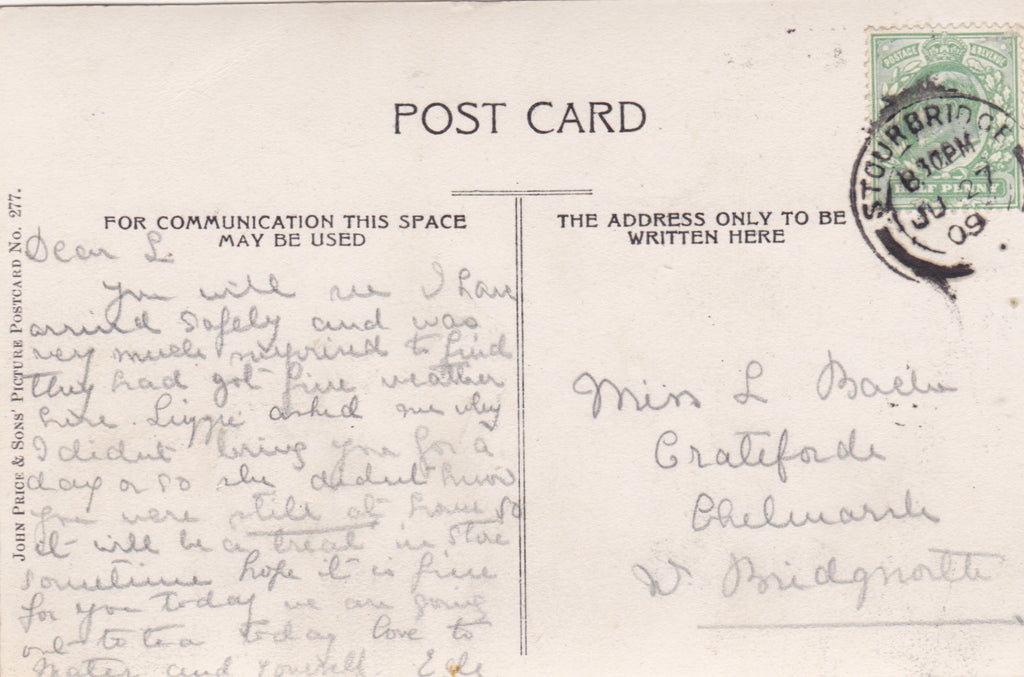 POST CARD
POSTAGE & REVENUE
HALF PENNY
STOURBRIDGE
8 30PM
JU 27
09
JOHN PRICE & SONS' PICTURE POSTCARD No. 277.
FOR COMMUNICATION THIS SPACE
MAY BE USED
Dear L.
You will see I have
arrived safely and was
very much surprised to find
they had got fine weather
here. Lizzie asked me why
I didnt bring you for a
day or so she didnt know
you were still at home so
it will be a treat in store
sometime hope it is fine
for you today we are going
out to tea today love to
Mater and yourself
THE ADDRESS ONLY TO BE
WRITTEN HERE
Miss L
Crateforde
Chelmarsh
Nr Bridgnorth